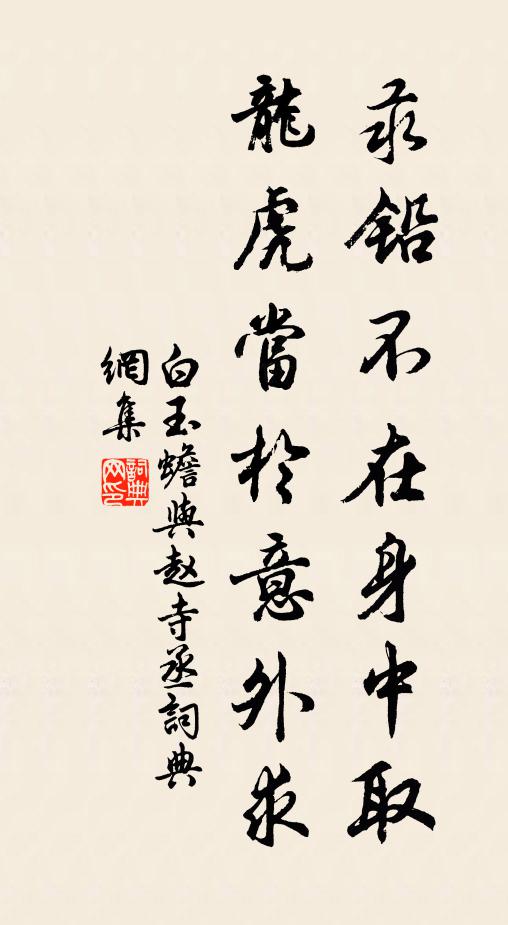 汞鉛不在身中取
龍虎當於意外求
白玉蟾與赵寺丞詞典
網集
詞典
网印